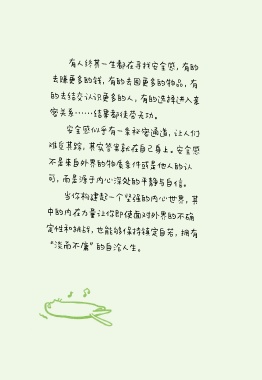 有人终其一生都在寻找安全感，有的
去赚更多的钱，有的去囤更多的物品，有
的去结交认识更多的人，有的选择进入亲
密关系……结果都徒劳无功。
安全感似乎有一条秘密通道，让人们
难觅其踪，其实答案就在自己身上。安全感
不是来自外界的物质条件或是他人的认
可，而是源于内心深处的平静与自信。
当你构建起一个坚强的内心世界，其
中的内在力量让你即使面对外界的不确
定性和挑战，也能够保持镇定自若，拥有
“淡而不庸”的自洽人生。